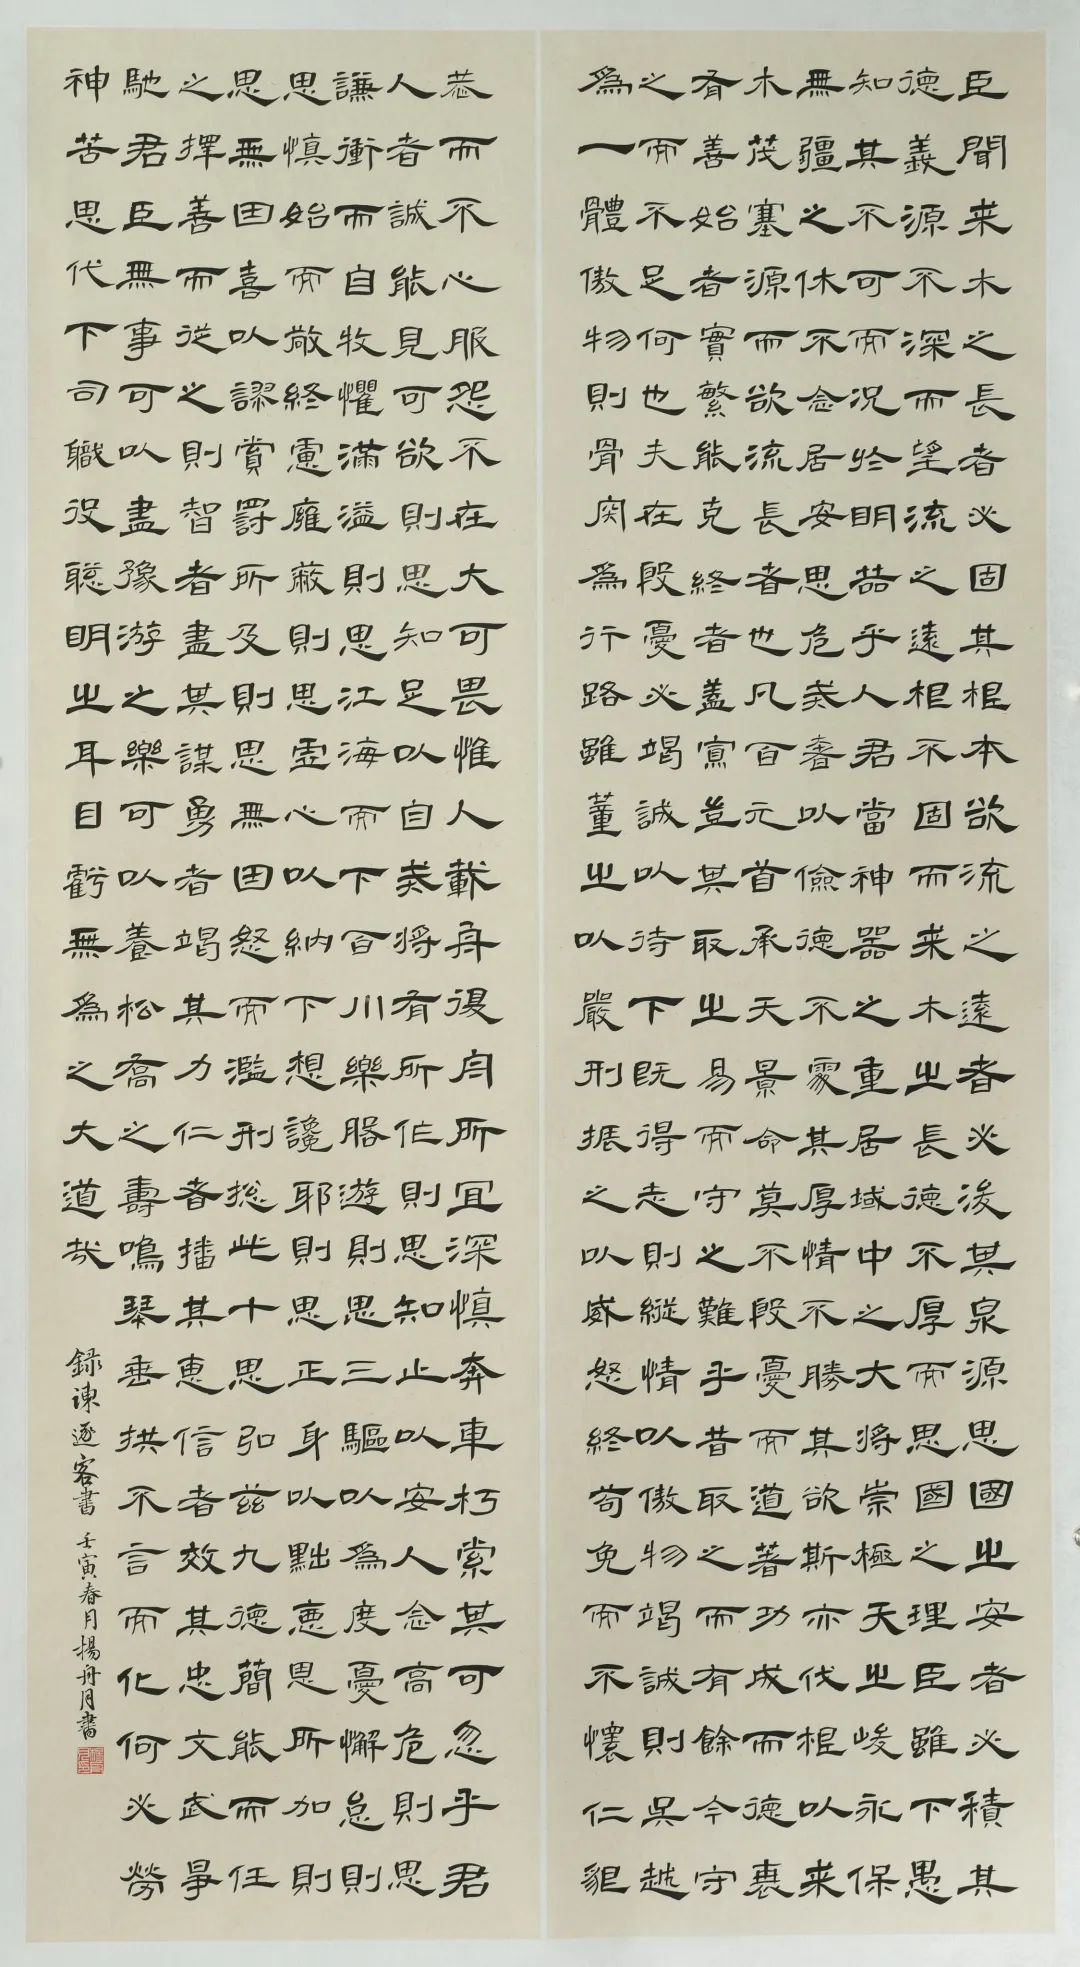 臣聞来木之長者必固其根本欲流之遠者必浚其泉源思國之安者必積其
德義源不深而望流之遠根不固而来木之長德不厚而思國之理臣雖下愚
知其不可而況於明喆乎人君當神器之重居域中之大將崇極天之峻永保
無疆之休不念居安思危戒奢以儉德不處其厚情不勝其欲斯亦伐根以来
木茂塞源而欲流長者也凡百元首承天景命莫不殷憂而道著功成而德衰
有善始者實繁能克終者蓋寡豈其取之易而守之難乎昔取之而有餘今守
之而不足何也夫在殷憂必竭誠以待下既得志則縱情以傲物竭誠則吳越
為一體傲物則骨肉為行路雖董之以嚴刑振之以威怒終苟免而不懷仁貌
恭而不心服怨不在大可畏惟人載舟復舟所宜深慎奔車朽索其可忽乎君
人者誠能見可欲則思知足以自戒將有所作則思知止以安人念高危則思
謙衝而自牧懼滿溢則思江海而下百川樂遊則思三驅以為度憂懈怠則
思慎始而敬終慮雍蔽則思虛心以納下想讒耶則思正身以黜惡思所加則
思無因喜以謬賞罰所及則思無因怒而濫刑總此十思弘茲九德簡能而任
之擇善而從之則智者盡其謀勇者竭其力仁者播其惠信者效其忠文武爭
馳君臣無事可以盡豫游之樂可以養松喬之壽鳴琴垂拱不言而化何必勞
神苦思代下司職役聰明之耳目虧無為之大道哉
錄諫逐客書 壬寅春月楊舟月書